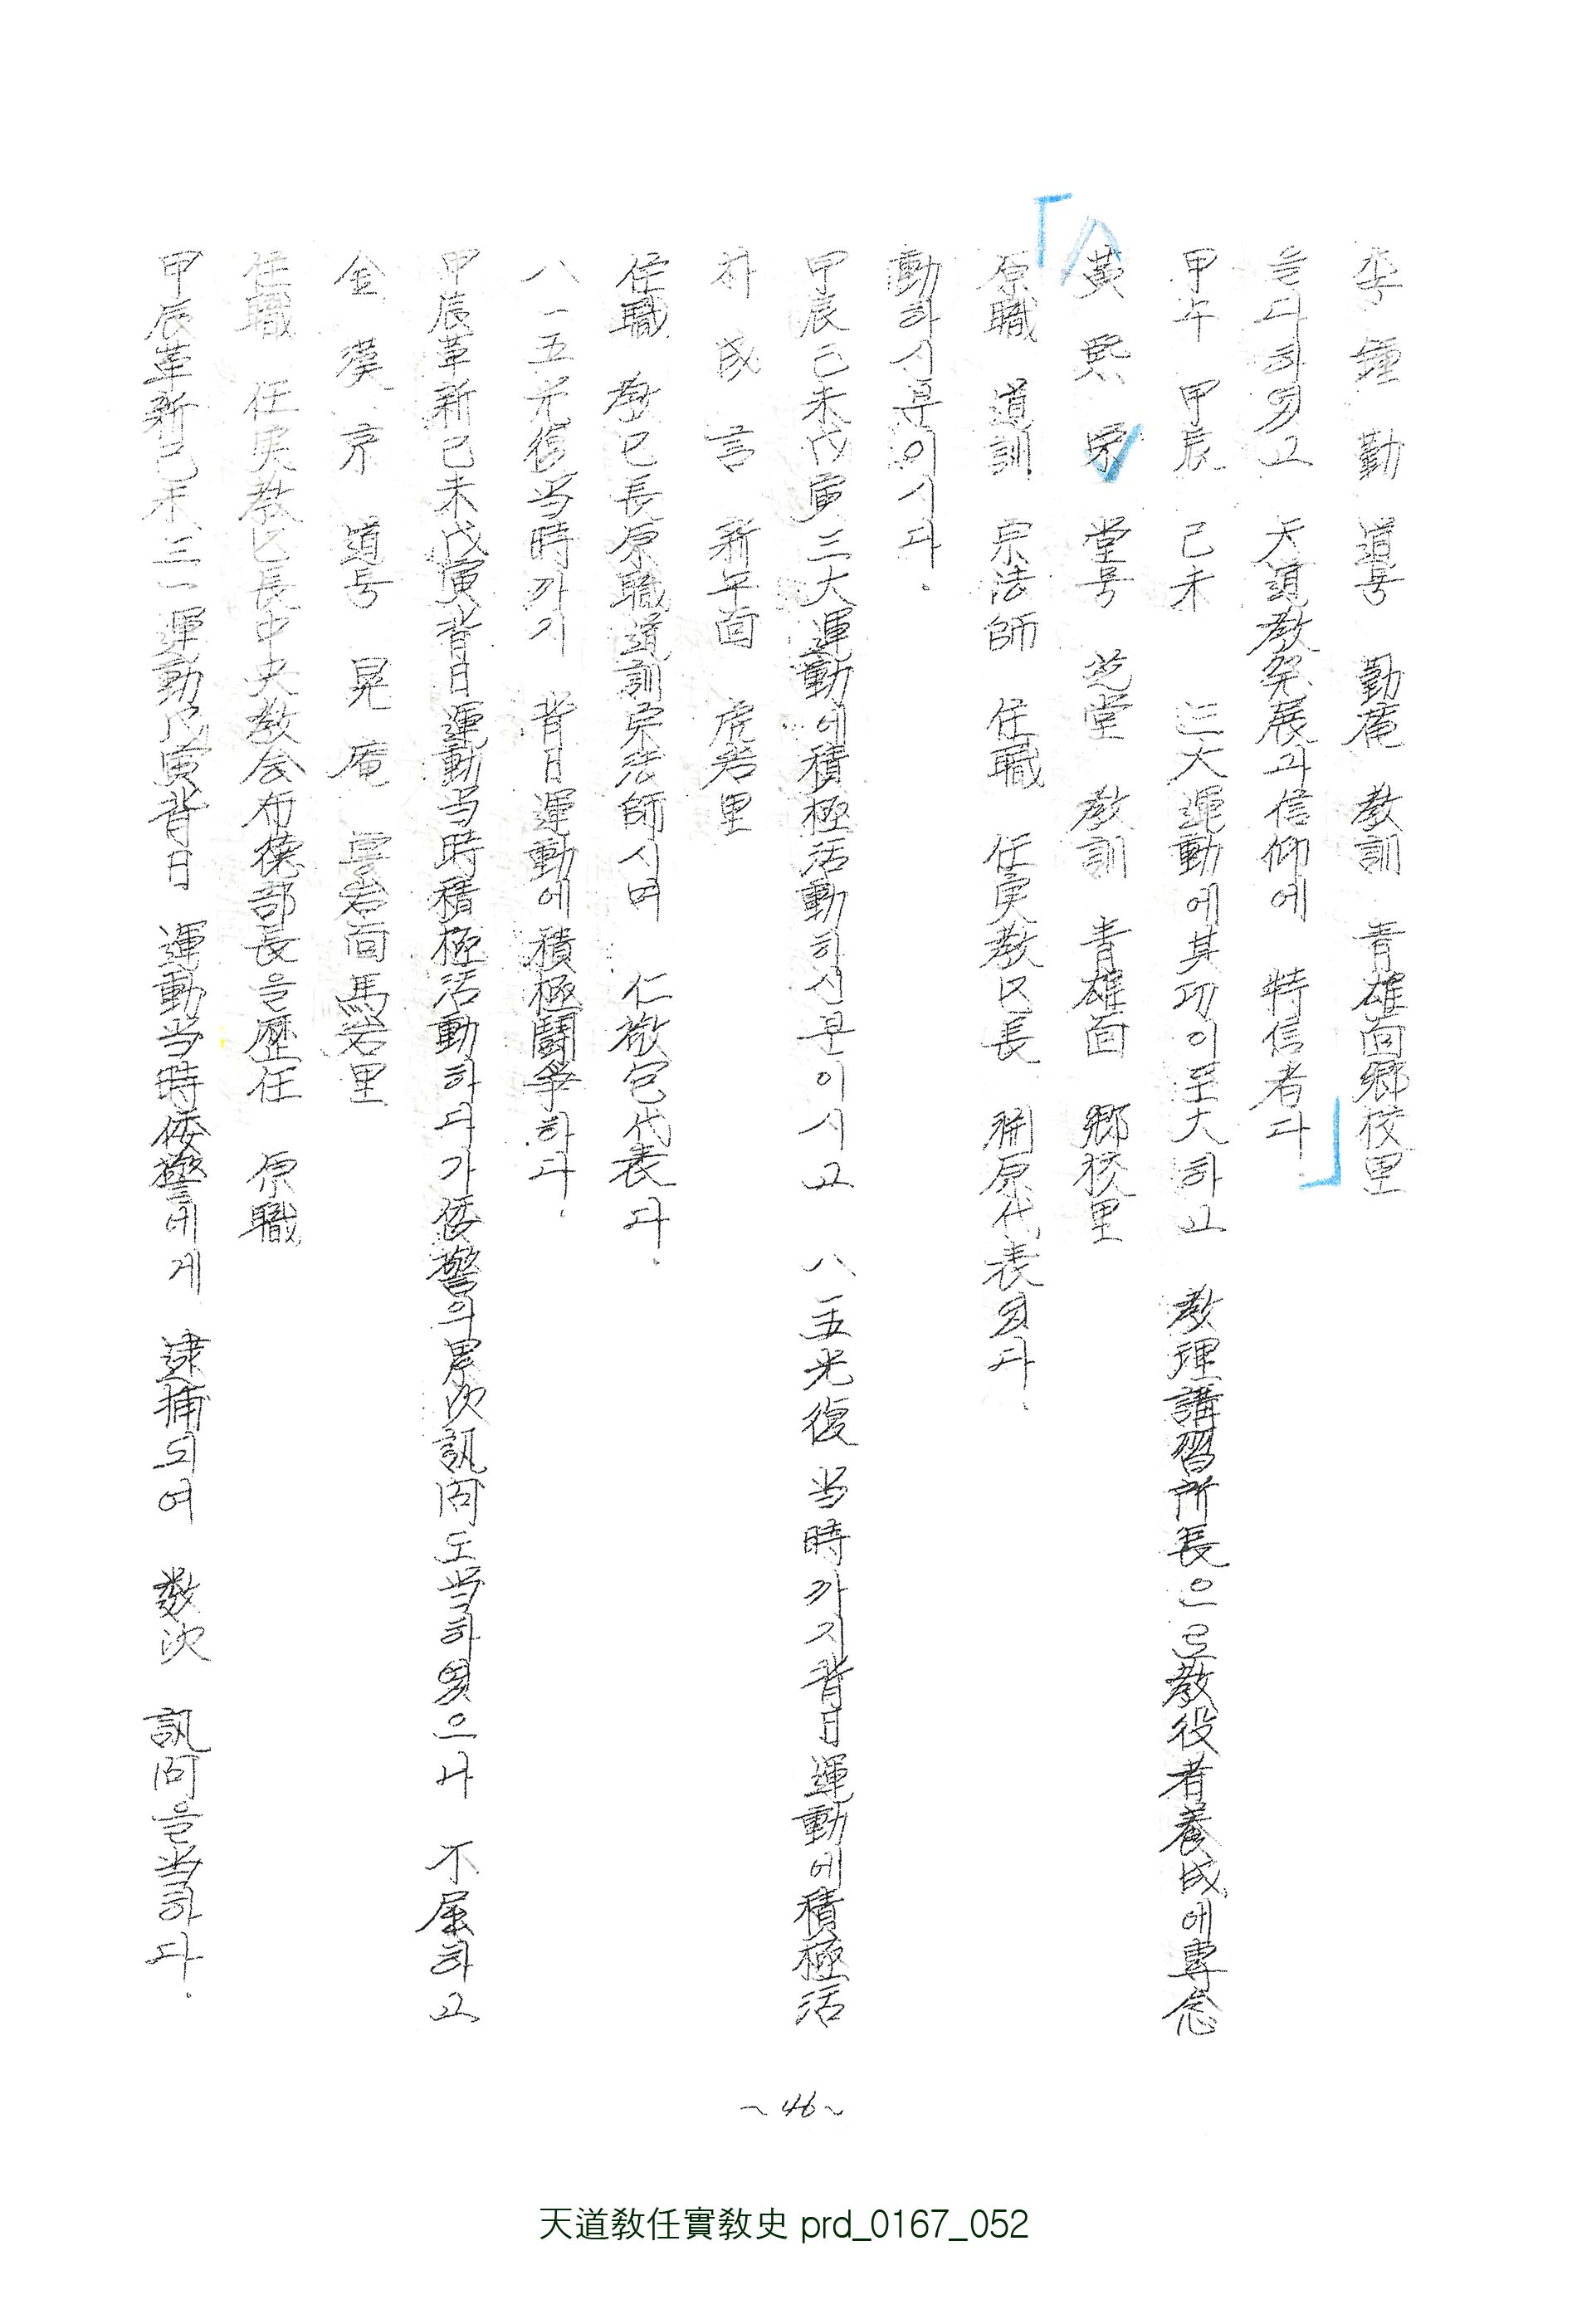 李鍾勤 道号 勤庵 教訓 青雄面郷校里
을다하였고 天道教発展과信仰에 特信者다.
甲午 甲辰 己未 三大運動에其功이至大하고 教理講習所長으로教役者養成에専念
黄熙宗 堂号 芝堂 教訓 青雄面 郷校里
原職 道訓 宗法師 住職 任実教区長 開原代表였다.
動하시분이시다.
甲辰己未戊寅三大運動에積極活動하신분이시고 八一五光復当時까지背日運動에積極活
朴成言 新年面 虎岩里
住職 教区長原職道訓宗法師시며 仁徽包代表다.
八一五光復当時까기 背日運動에積極闘争하다.
甲辰革新己未戊寅背日運動当時積極活動하다가倭警의累次訊問도当하였으나 不屈하고
金漢京 道号 晃庵 雲岩面馬岩里
住職 任実教区長中央教会布徳部長을歴任 原職
甲辰革新己未三一運動戊寅背日 運動当時倭警에게 逮捕되여 数次 訊問을当하다.
~46~
天道敎任實敎史 prd_0167_052